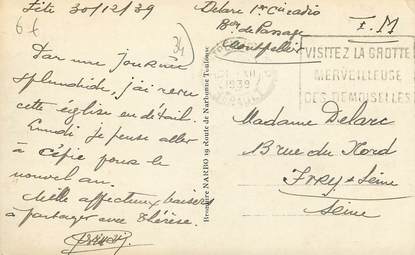 30/12/39
Par une journée
splendide, j'ai revu
cette église en détail.
Lundi je pense aller
à Cépie pour le
nouvel an.
Mille affectueux baisers
à partager avec Thérèse.
66
34
Bromure NARBO 19 route de Narbonne Toulouse
Delarc 1re Cie radio
de Passage
Montpellier
F. M
1939
VISITEZ LA GROTTE
MERVEILLEUSE
DES DEMOISELLES
Madame Delarc
8 rue du Nord
IVRY s/ Seine
Seine